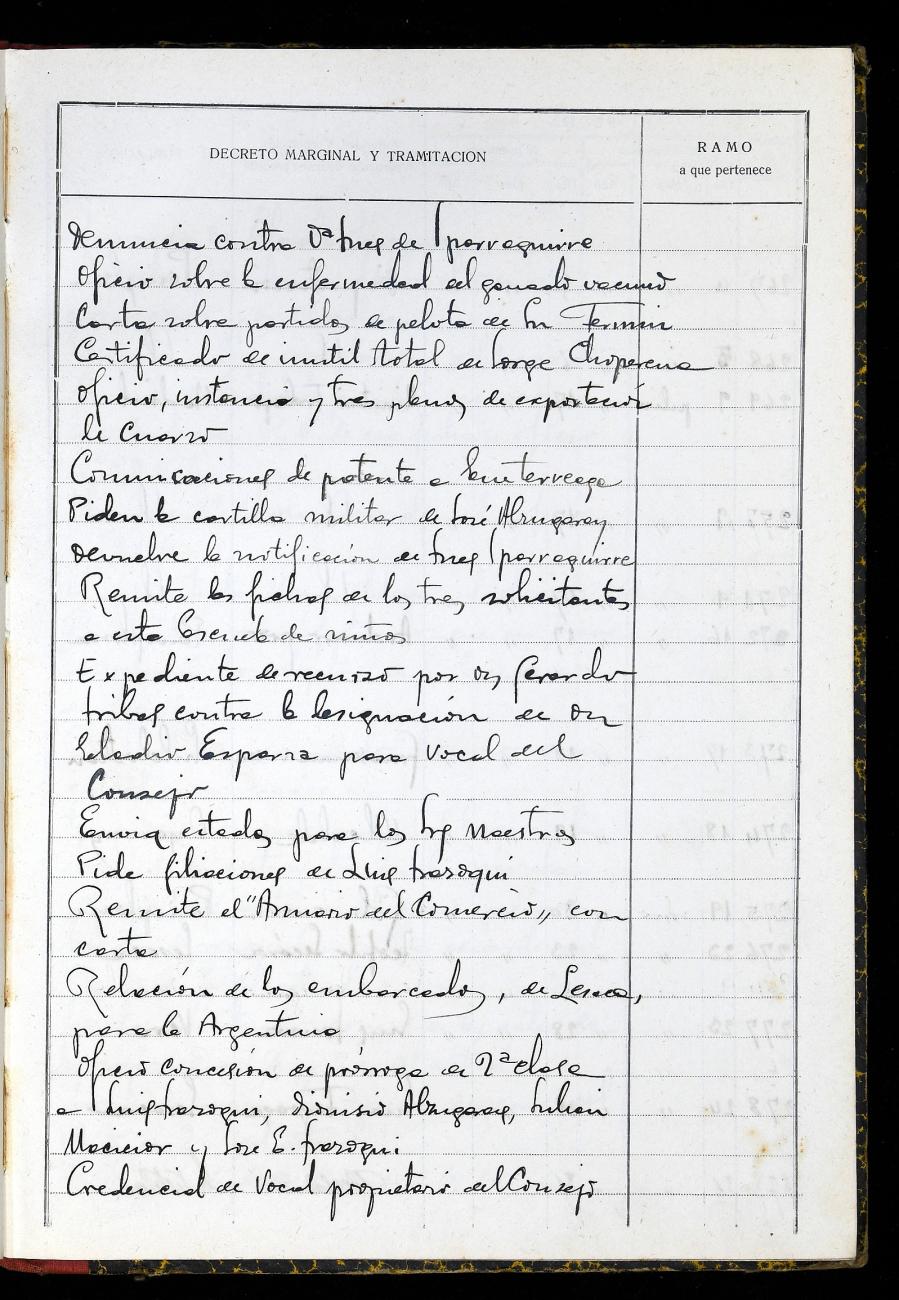 DECRETO MARGINAL Y TRAMITACION
RAMO
a que pertenece
Denuncia contra Dª Ines de Iparraguirre
Oficio sobre la enfermedad del ganado vacuno
Carta sobre partidos de pelota de Sn Fermin
Certificado de inutil total de Jorge Choperena
Oficio, instancia y tres planos de exportación
de Cuarzo
Comunicaciones de patente a
Piden la cartilla militar de José Alzugaray
Devuelve la notificación de Ines Iparraguirre
Remite las fichas de los tres solicitantes
a esta Escuela de niños
Expediente de recurso por Dn Gerardo
contra la designación de Dn
Eladio Esparza para Vocal del
Consejo
Envia estados para los Srs Maestros
Pide filiaciones de Luis Irazoqui
Remite el "Anuario del Comercio" con
carta
Relación de los embarcados, de Lesaca,
para la Argentina
Oficio concesión de prórroga de 2ª clase
a Luis Irazoqui, Dionisio Alzugaray, Julian
Macicior y Jose E. Irazoqui.
Credencial de Vocal propietario del Consejo